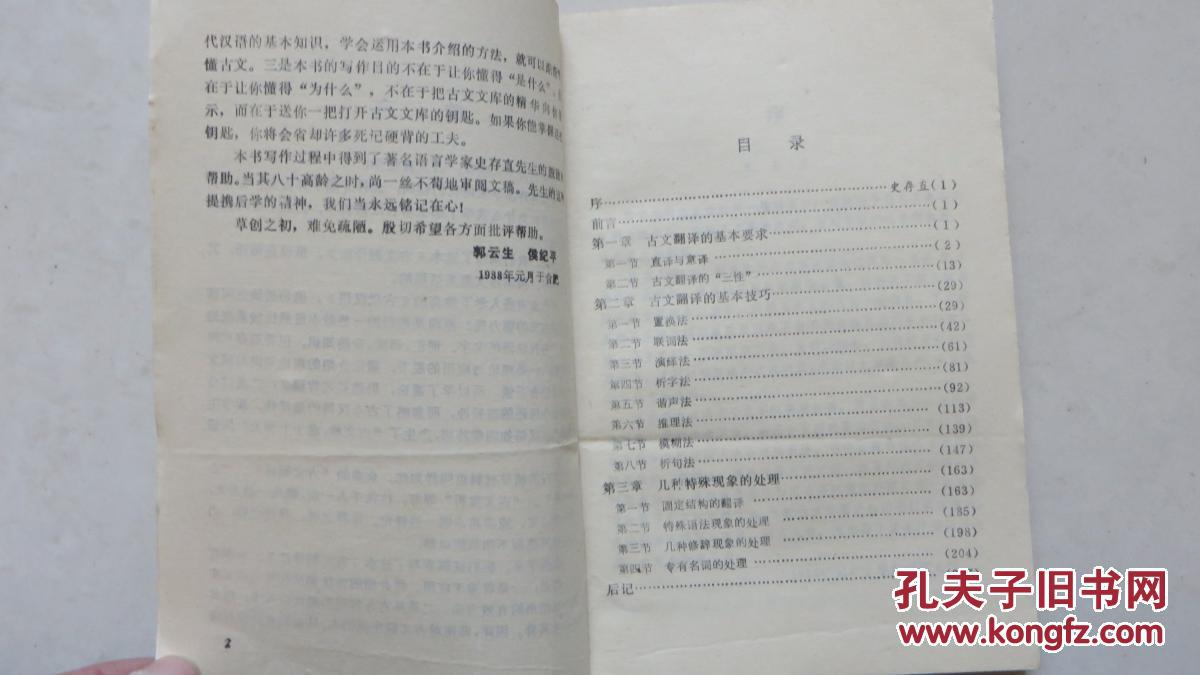 代汉语的基本知识，学会运用本书介绍的方法，就可以
懂古文。三是本书的写作目的不在于让你懂得“是什么”，
在于让你懂得“为什么”，不在于把古文文库的精华向你
示，而在于送你一把打开古文文库的钥匙。如果你能掌握
钥匙，你将会省却许多死记硬背的工夫。
本书写作过程中得到了著名语言学家史存直先生的
帮助。当其八十高龄之时，尚一丝不苟地审阅文稿。先生的这种
提携后学的精神，我们当永远铭记在心！
草创之初，难免疏陋。殷切希望各方面批评帮助。
郭云生 侯纪平
1988年元月于合肥
2
目 录
序……史存直（1）
前言……（1）
第一章 古文翻译的基本要求……（2）
第一节 直译与意译……（2）
第二节 古文翻译的“三性”……（13）
第二章 古文翻译的基本技巧……（29）
第一节 置换法……（29）
第二节 联词法……（42）
第三节 演绎法……（61）
第四节 析字法……（81）
第五节 谐声法……（92）
第六节 推理法……（113）
第七节 模糊法……（139）
第八节 析句法……（147）
第三章 几种特殊现象的处理……（163）
第一节 固定结构的翻译……（163）
第二节 特殊语法现象的处理……（185）
第三节 几种修辞现象的处理……（198）
第四节 专有名词的处理……（204）
后记……
孔夫子旧书网
www.kongfz.com